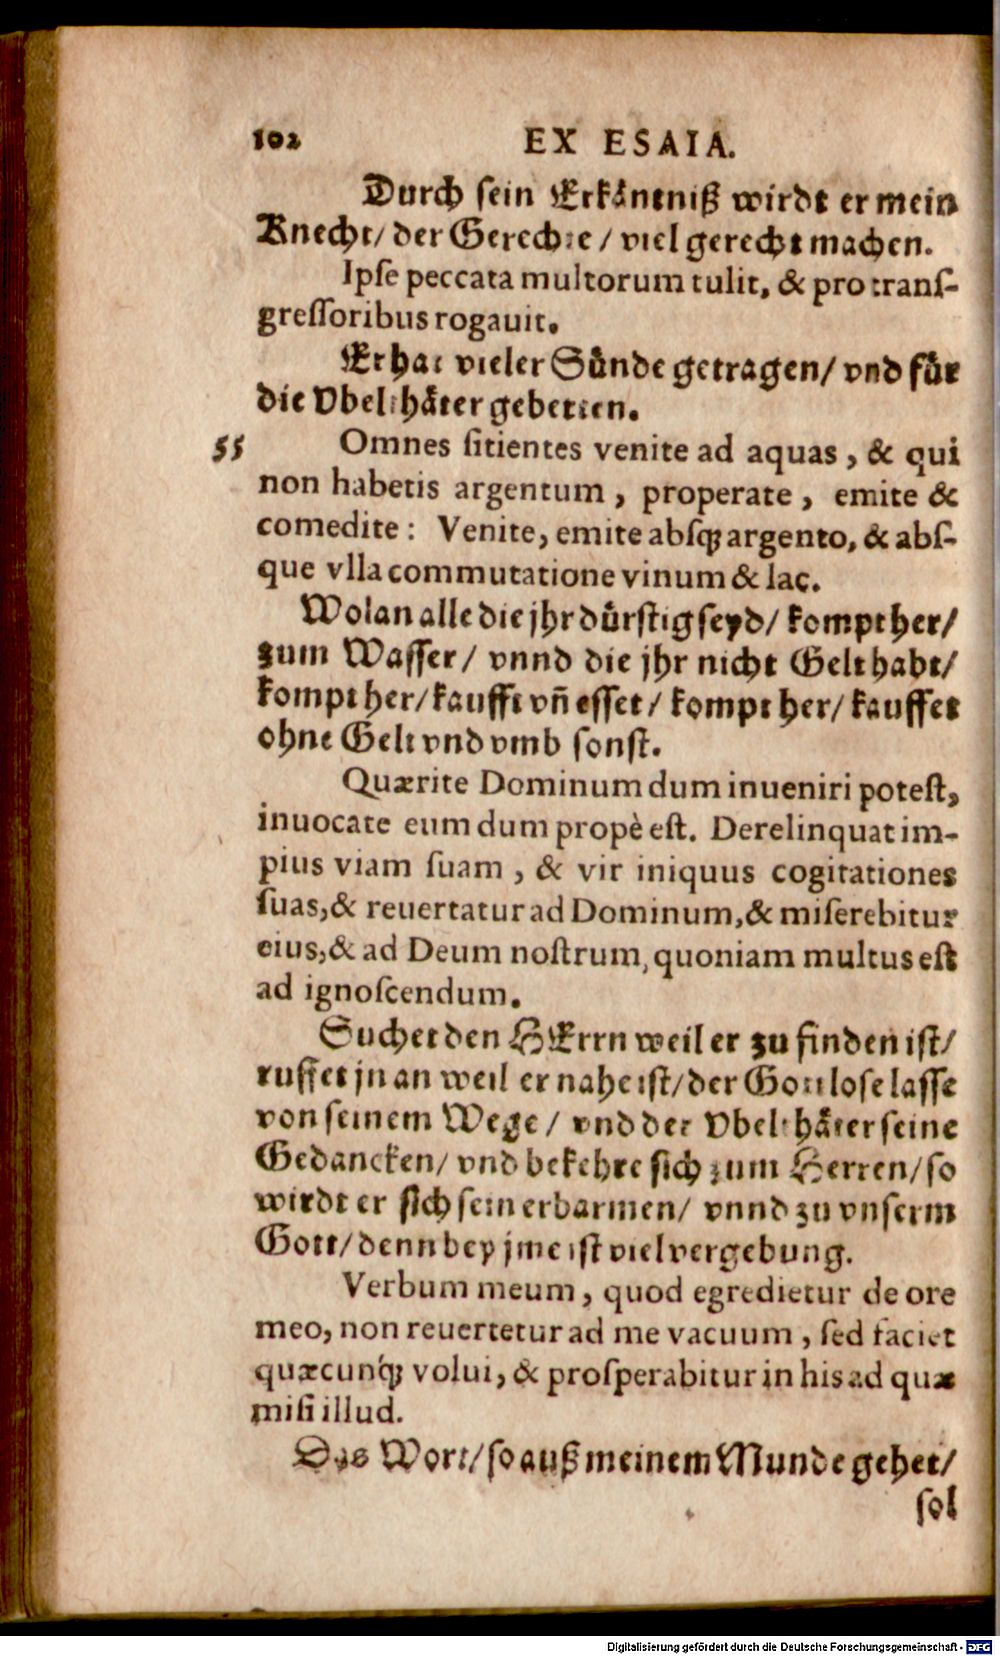 102 EX ESAIA.
Durch sein Erkåntniß wirdt er mein
Knecht/ der Gerechte / viel gerecht machen.
Ipſe peccata multorum tulit, & pro tranſ-
greſſoribus rogauit.
Er hat vieler Sůnde getragen/ vnd fůr
die Vbelthåter gebetten.
55 Omnes ſitientes venite ad aquas, & qui
non habetis argentum, properate, emite &
comedite: Venite, emite abſq; argento, & abſ-
que vlla commutatione vinum & lac.
Wolan alle die jhr důrstig seyd/ kompt her/
zum Wasser/ vnnd die jhr nicht Gelt habt/
kompt her/ kaufft vñ esset/ kompt her/ kauffet
ohne Gelt vnd vmb sonst.
Quærite Dominum dum inueniri poteſt,
inuocate eum dum propè eſt. Derelinquat im-
pius viam ſuam, & vir iniquus cogitationes
ſuas, & reuertatur ad Dominum, & miſerebitur
eius, & ad Deum noſtrum, quoniam multus eſt
ad ignoſcendum.
Suchet den HErrn weil er zu finden ist/
ruffet jn an weil er nahe ist/ der Gottlose lasse
von seinem Wege / vnd der Vbelthåter seine
Gedancken/ vnd bekehre sich zum Herren/ so
wirdt er sich sein erbarmen/ vnnd zu vnserm
Gott/ denn bey jme ist viel vergebung.
Verbum meum, quod egredietur de ore
meo, non reuertetur ad me vacuum, ſed faciet
quæcunq́; volui, & proſperabitur in his ad quæ
miſi illud.
Das Wort/ so auß meinem Munde gehet/
sol
Digitalisierung gefördert durch die Deutsche Forschungsgemeinschaft - DFG